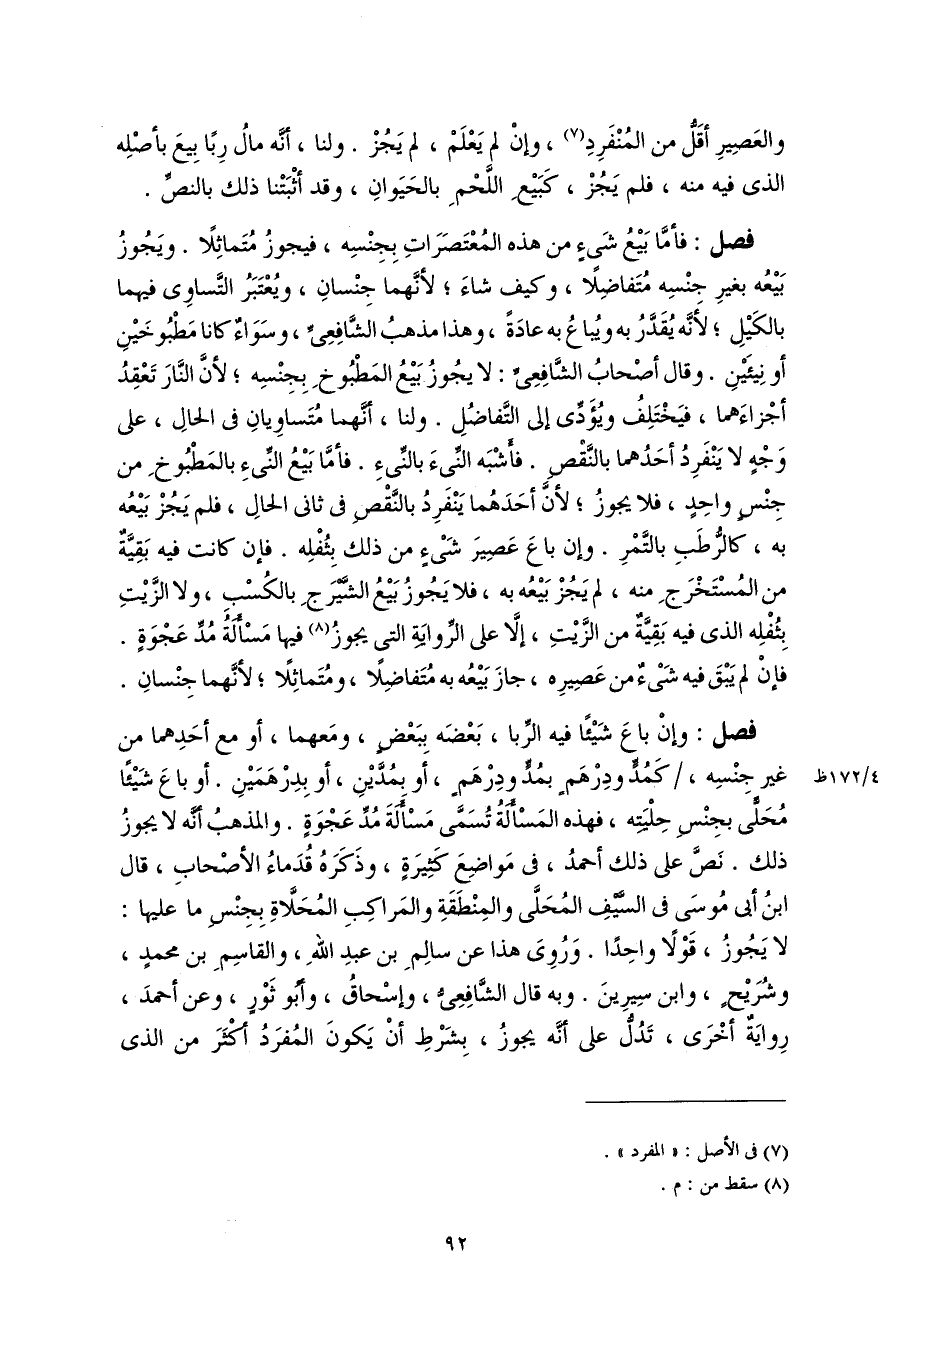 والعَصِيرِ أقَلُّ من المُنْفَرِدِ(٧) ، وإنْ لم يَعْلَمْ ، لم يَجُزْ . ولنا ، أنَّه مالُ رِبًا بِيعَ بأصْلِه
الذى فيه منه ، فلم يَجُزْ ، كَبَيْعِ اللَّحْمِ بالحَيَوانِ ، وقد أثْبَتْنا ذلك بالنصِّ .
فصل : فأمَّا بَيْعُ شَىْءٍ من هذه المُعْتَصَرَاتِ بِجِنْسِه ، فيجوزُ مُتَماثِلًا . ويَجُوزُ
بَيْعُه بغيرِ جِنْسِه مُتَفاضِلًا ، وكيف شاءَ ؛ لأنَّهما جِنْسانِ ، ويُعْتَبَرُ التَّساوِى فيهما
بالكَيْلِ ؛ لأنَّه يُقَدَّرُ به ويُباعُ به عادَةً ، وهذا مذهبُ الشَّافِعِىِّ ، وسَوَاءٌ كانا مَطْبُوخَيْنِ
أو نِيئَيْنِ . وقال أصْحابُ الشَّافِعِىِّ : لا يجوزُ بَيْعُ المَطْبُوخِ بِجِنْسِه ؛ لأنَّ النَّارَ تَعْقِدُ
أجْزاءَهما ، فيَخْتَلِفُ ويُؤَدِّى إلى التَّفاضُلِ . ولنا ، أنَّهما مُتَساوِيانِ فى الحالِ ، على
وَجْهٍ لا يَنْفَرِدُ أحَدُهما بالنَّقْصِ . فأشْبَه النِّىءَ بالنِّىءِ . فأمَّا بَيْعُ النِّىءِ بالمَطْبُوخِ من
جِنْسٍ واحِدٍ ، فلا يجوزُ ؛ لأنَّ أحَدَهُما يَنْفَرِدُ بالنَّقْصِ فى ثانى الحالِ ، فلم يَجُزْ بَيْعُه
به ، كالرُّطَبِ بالتَّمْرِ . وإن باعَ عَصِيرَ شَىْءٍ من ذلك بِثُفْلِه . فإن كانت فيه بَقِيَّةٌ
من المُسْتَخْرَجِ منه ، لم يَجُزْ بَيْعُه به ، فلا يَجُوزُ بَيْعُ الشَّيْرَجِ بالكُسْبِ ، ولا الزَّيْتِ
بِثُفْلِه الذى فيه بَقِيَّةٌ من الزَّيْتِ ، إلَّا على الرِّوايَةِ التى يجوزُ(٨) فيها مَسْألَةُ مُدِّ عَجْوَةٍ .
فإنْ لم يَبْقَ فيه شَىْءٌ من عَصِيرِه ، جازَ بَيْعُه به مُتَفاضِلًا ، ومُتَماثِلًا ؛ لأنَّهما جِنْسانِ .
فصل : وإنْ باعَ شَيْئًا فيه الرِّبا ، بَعْضَه بِبَعْضٍ ، ومَعهما ، أو مع أحَدِهما من
غيرِ جِنْسِه ، / كَمُدٍّ ودِرْهَمٍ بمُدٍّ ودِرْهَمٍ ، أو بمُدَّيْنِ ، أو بِدِرْهَمَيْنِ . أو باعَ شَيْئًا
٤/١٧٢ظ
مُحَلًّى بجِنْسِ حِلْيَتِه ، فهذه المَسْألَةُ تُسَمَّى مَسْألَةَ مُدِّ عَجْوَةٍ . والمذهبُ أنَّه لا يجوزُ
ذلك . نَصَّ على ذلك أحمدُ ، فى مَواضِعَ كَثِيرَةٍ ، وذَكَرَهُ قُدَماءُ الأصْحابِ ، قال
ابنُ أبى مُوسَى فى السَّيْفِ المُحَلَّى والمِنْطَقَةِ والمَراكِبِ المُحَلَّاةِ بِجِنْسِ ما عليها :
لا يَجُوزُ ، قَوْلًا واحِدًا . وَرُوِىَ هذا عن سالِمِ بن عبدِ اللهِ ، والقاسِمِ بن محمدٍ ،
وشُرَيْحٍ ، وابن سِيرِينَ . وبه قال الشَّافِعِىُّ ، وإسْحاقُ ، وأبو ثَوْرٍ ، وعن أحمدَ ،
رِوايَةٌ أُخْرَى ، تَدُلُّ على أنَّه يجوزُ ، بِشَرْطِ أنْ يَكونَ المُفرَدُ أكْثَرَ من الذى
(٧) فى الأصل : « المفرد » .
(٨) سقط من : م .
٩٢